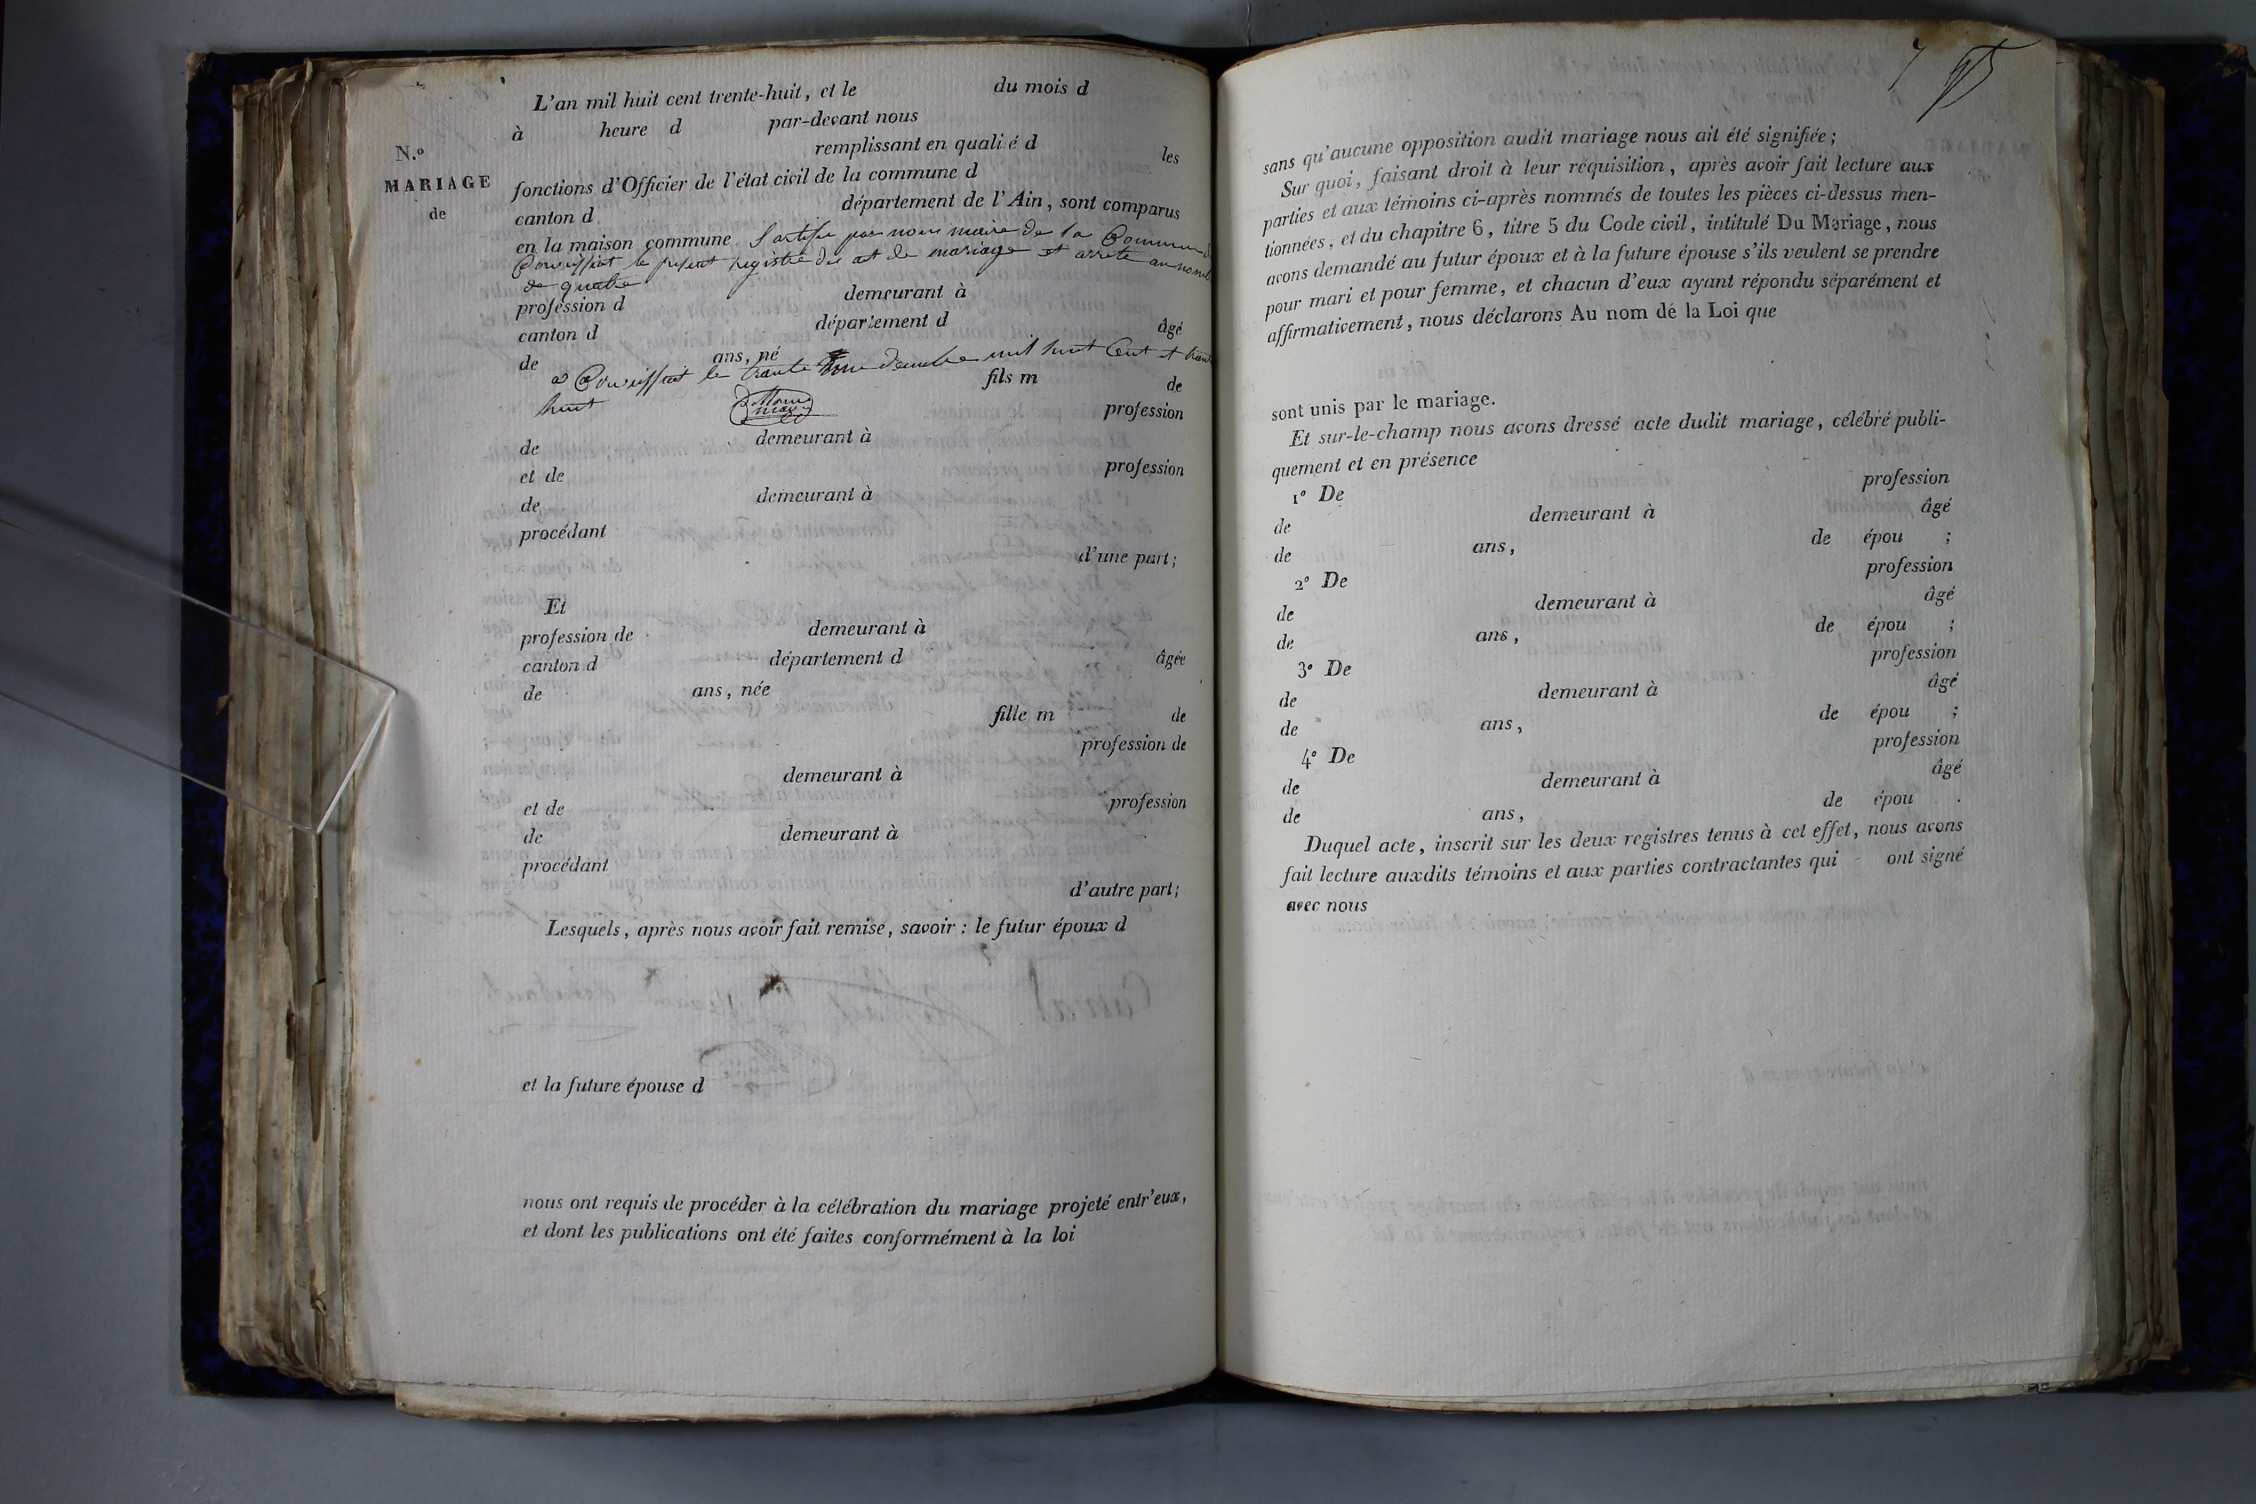 L'an mil huit cent trente-huit, et le du mois d
à heure d par-devant nous
remplissant en quali é d les
N.º
MARIAGE
de
fonctions d'Officier de l'état civil de la commune d
canton d département de l'Ain, sont comparus
en la maison commune par nous maire de la Commune
le present registre des act de mariage et arrete au
de quatre
profession d demeurant à
canton d département d âgé
de ans, né
a le trante mil huit Cent et
huit fils m de
profession
de demeurant à
et de profession
de demeurant à
procédant
d'une part;
Et
profession de demeurant à
canton d département d âgée
de ans, née
fille m de
profession de
demeurant à
et de profession
de demeurant à
procédant
d'autre part;
Lesquels, après nous avoir fait remise, savoir : le futur époux d
et la future épouse d
nous ont requis de procéder à la célébration du mariage projeté entr'eux,
et dont les publications ont été faites conformément à la loi
sans qu'aucune opposition audit mariage nous ait été signifiée;
Sur quoi, faisant droit à leur réquisition, après avoir fait lecture aux
parties et aux témoins ci-après nommés de toutes les pièces ci-dessus men-
tionnées, et du chapitre 6, titre 5 du Code civil, intitulé Du Mariage, nous
avons demandé au futur époux et à la future épouse s'ils veulent se prendre
pour mari et pour femme, et chacun d'eux ayant répondu séparément et
affirmativement, nous déclarons Au nom dé la Loi que
sont unis par le mariage.
Et sur-le-champ nous avons dressé acte dudit mariage, célébré publi-
quement et en présence
1º De profession
de demeurant à âgé
de ans, de épou ;
2º De profession
de demeurant à âgé
de ans, de épou ;
3º De profession
de demeurant à âgé
de ans, de épou ;
4º De profession
de demeurant à âgé
de ans, de épou .
Duquel acte, inscrit sur les deux registres tenus à cet effet, nous avons
fait lecture auxdits témoins et aux parties contractantes qui ont signé
avec nous